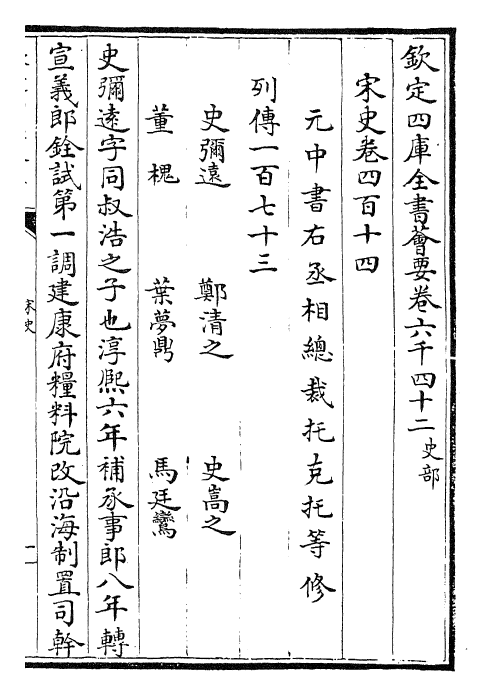 欽定四庫全書薈要卷六千四十二 史部
宋史卷四百十四
元中書右丞相總裁托克托等修
列傳一百七十三
史彌遠 鄭清之 史嵩之
董槐 葉夢鼎 馬廷鸞
史彌遠字同叔浩之子也淳熙六年補承事郎八年轉
宣義郎銓試第一調建康府糧料院改沿海制置司幹
宋史